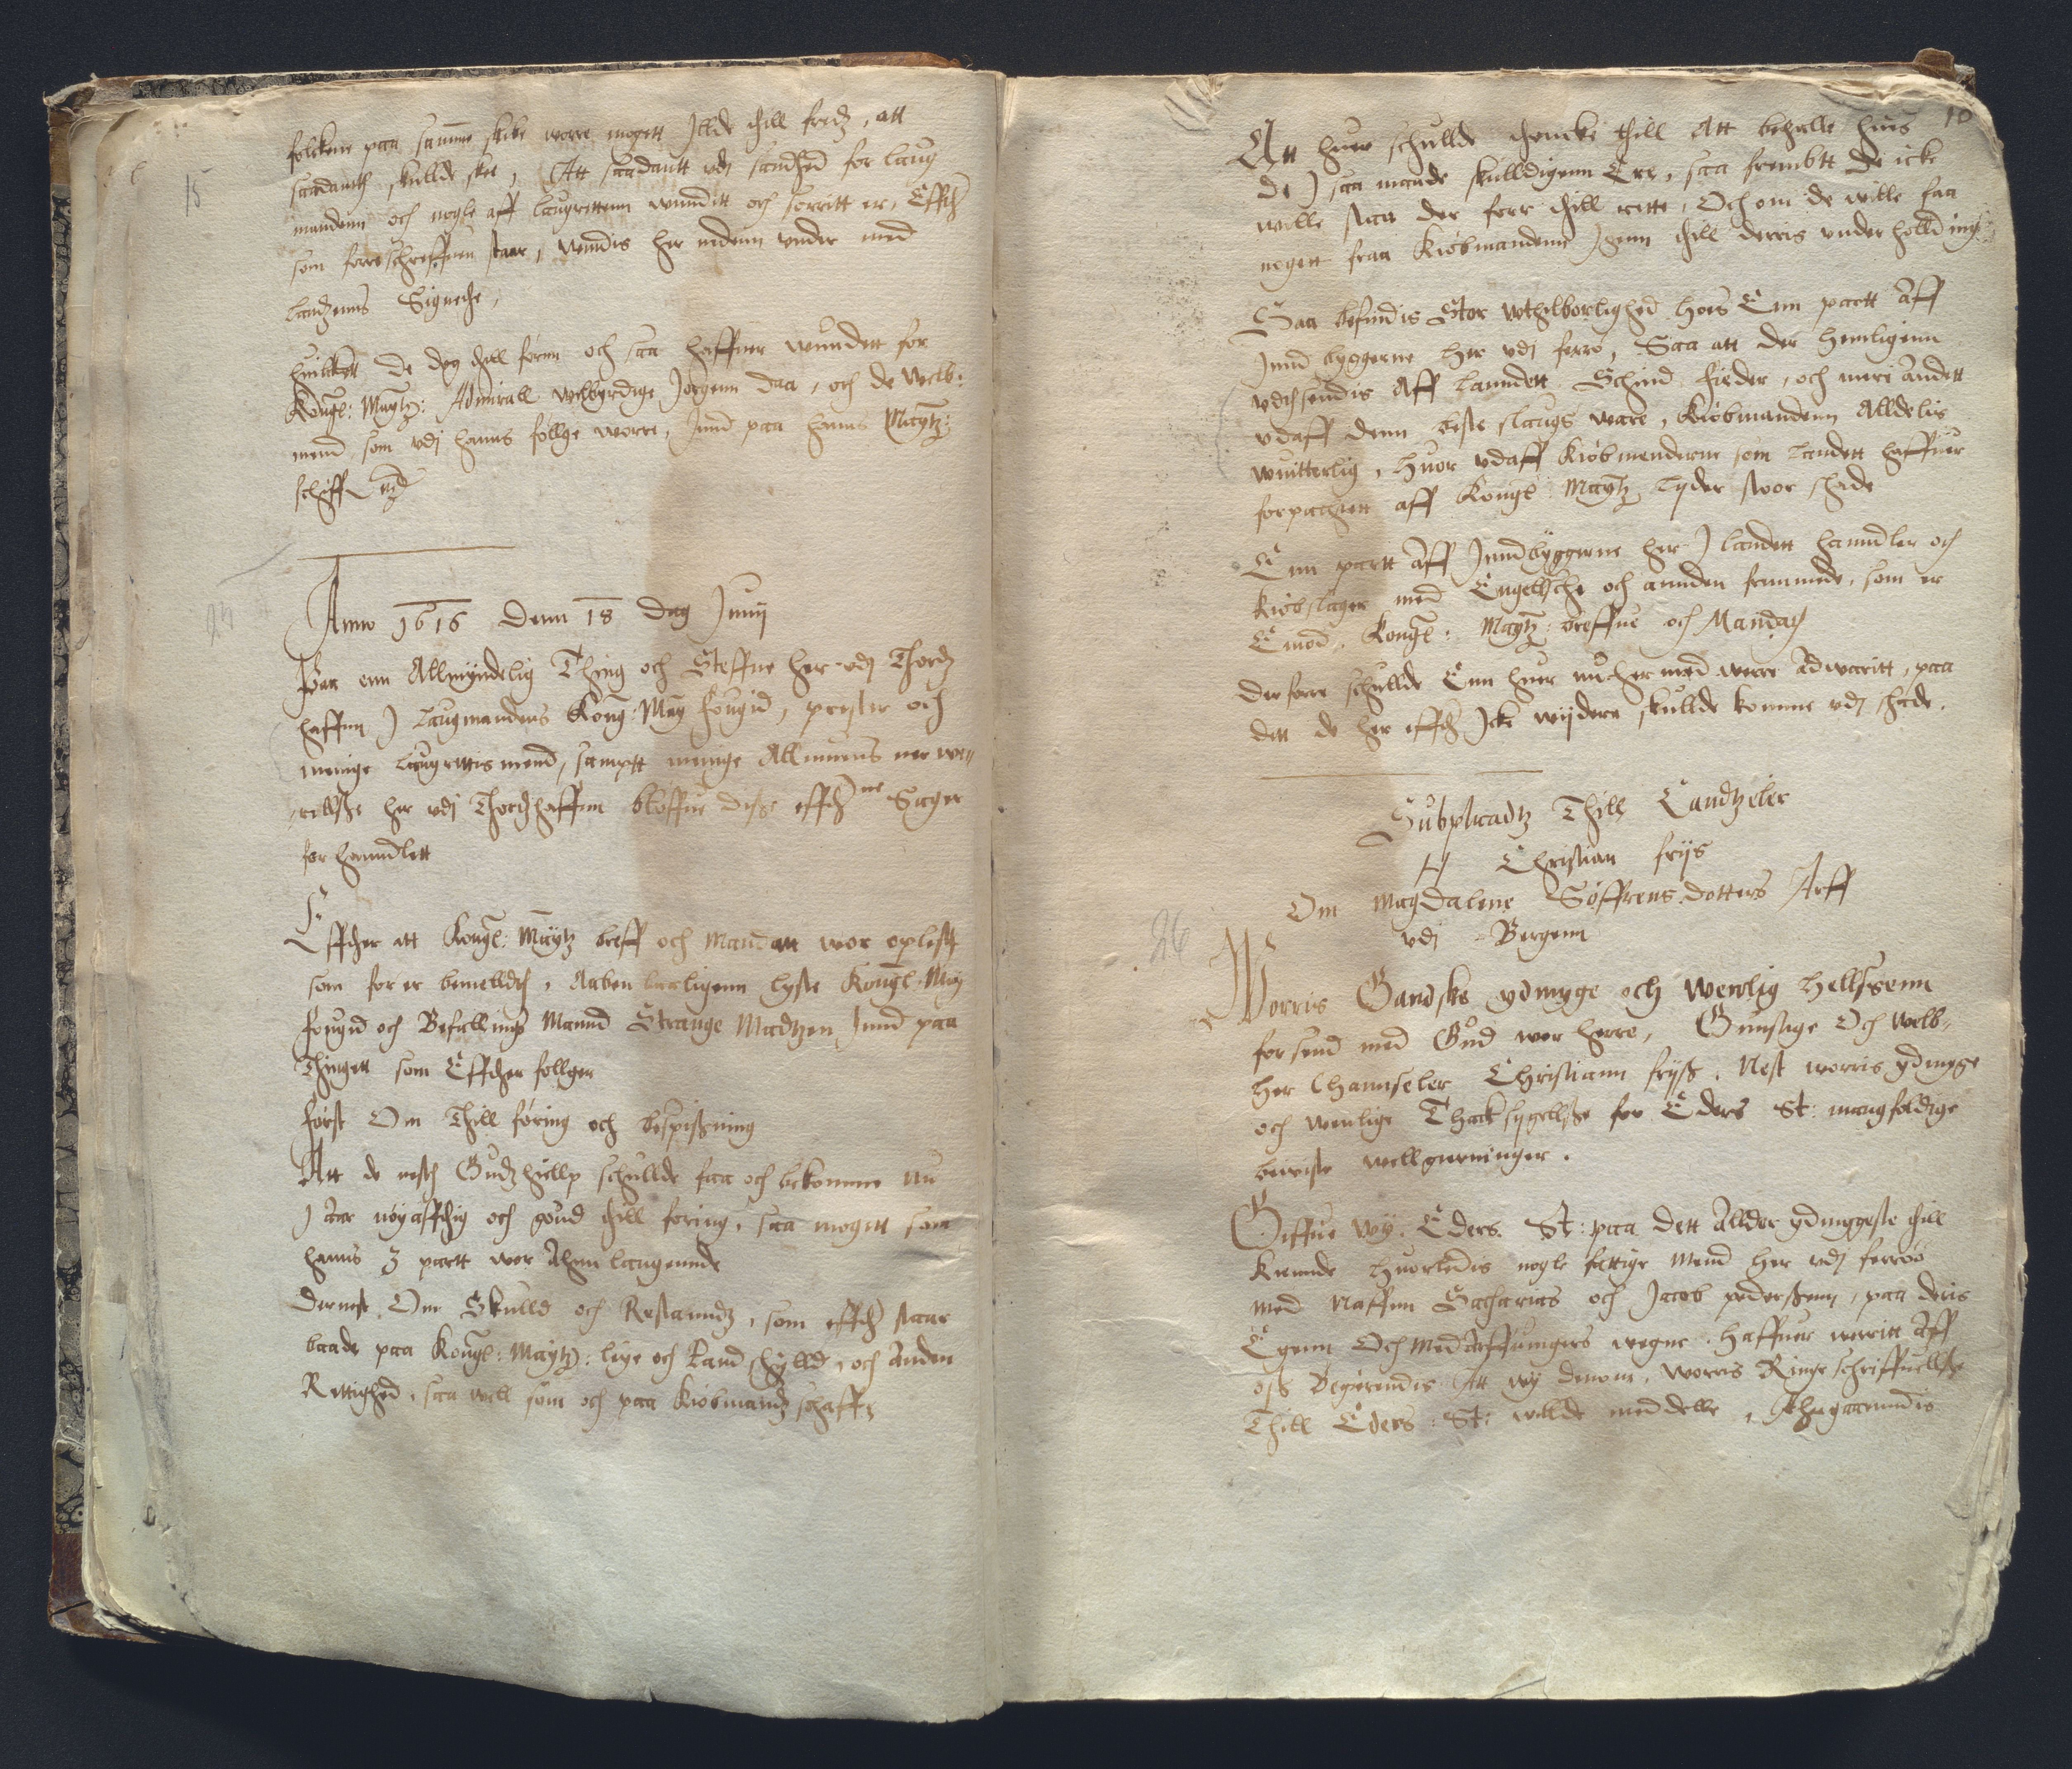 15
folckene paa samme skibe worre mogett Jllde thill fredz, att
saadantt skullde skee, Att saadantt udj sandhed for laug
mandenn och nogle aff laugrettenn wunditt och sorritt er, Effther
som forreschreffuen staar, wendis her nedenn under med
landzenns Signethe,
huilckett de dog thill fornn och saa haffuer wundett for
Kongl: Maytz: Admirall welbyrdige Jorgenn Daa, och de welb:
mend som udj hanns føllge worre, Jnnd paa hanns Maytz:
schiff
Anno 1616 Denn 18 dag Junij
Paa enn Allmyndelig Thing och Steffne her udj Thors
haffnn J Laugmandens Kong: May fougid, prester och
menige Laugrettis mend, sampt menige Allmuens ner we,,
rellsße her udj Thorßhaffnn bløffue disse effther ne Sager
for hanndlett
Effther att Kongl: Maytz breff och Mandatt wor oplest
som for er bemelldt, Aaben liuligenn lyste Kongl: May
fougid och Befallings Mannd Strange Madtzen Jnnd paa
Thingett som Efftherføllger
først Om Thill føring och bespisning
Att de nest Gudz hiellp schullde faa och bekomme nu
J aar nøyafftig och goud thill føring, saa mogett som
hanns 3 partt wor Ahnn laugennde
Dernest Om Skulld och Restanndz, som effther staar
baade paa Kongl: Maytz: leye och Landskylld, och Anden
Rettighed, saa well som och paa Kiøbmandz schaff
10
Att huer schullde thencke thill Att behalle huis
de J saa maade skulldigenn Ere, saa frembtt de icke
wille staa der forr thill rette, Och om de wille faa
nogett fraa Kiøbmandenn Jgenn thill derris underhollding
Saa befindis Stor Uthilborlighed hoes Enn partt Aff
Jnnd byggerne her udj ferrø, Saa att der hemligenn
udthsendis Aff Lanndett Schind fieder, och mere andett
udaff denn beste slaugs ware, Kiøbmandenn Alldelis
uuitterlig, huor udaff Kiøbmenderne som Landett haffuer
forpachtett aff Kongl: Maytz lyder stoor skade
Enn partt Aff Jnndbyggerne her J landett hanndler och
Kiøbslager med Engellsche och annden fremmede, som er
Emod Kongl: Maytz: breffue och Mandat
derforre schullde Enn huer nu her med werre Adwaritt, paa
dett de her effther Jcke wijdere skullde komme udj skade.
Supplicadtz Thill Candtzeler
H Christian frijs
Om Magdalene Søffrens dotters Arff
udj Bergenn
26
Worris Gandske ydmyge och wenlig hellsßenn
forsend med Gud wor herre, Gunstige Och welb,
her Channseler Christiann frijß. Nest worris ydmyge
och wenlige Thacksigellsße for Eders St: mangfoldige
beuiste wellgierninger.
Giffue wy Eders St: paa dett Allder ydmygeste thill
Kiennde huorledis nogle fattige Mend her udj ferrøe
med Naffnn Sacharias och Jacob pedersßenn, paa deris
Egenn Och medarffuingers wegne haffuer werritt Aff
oss Begierendis Att wy denom, worris Ringe schriffuellsße
Thill Eders St: wilde meddelle, Ahngaaendis